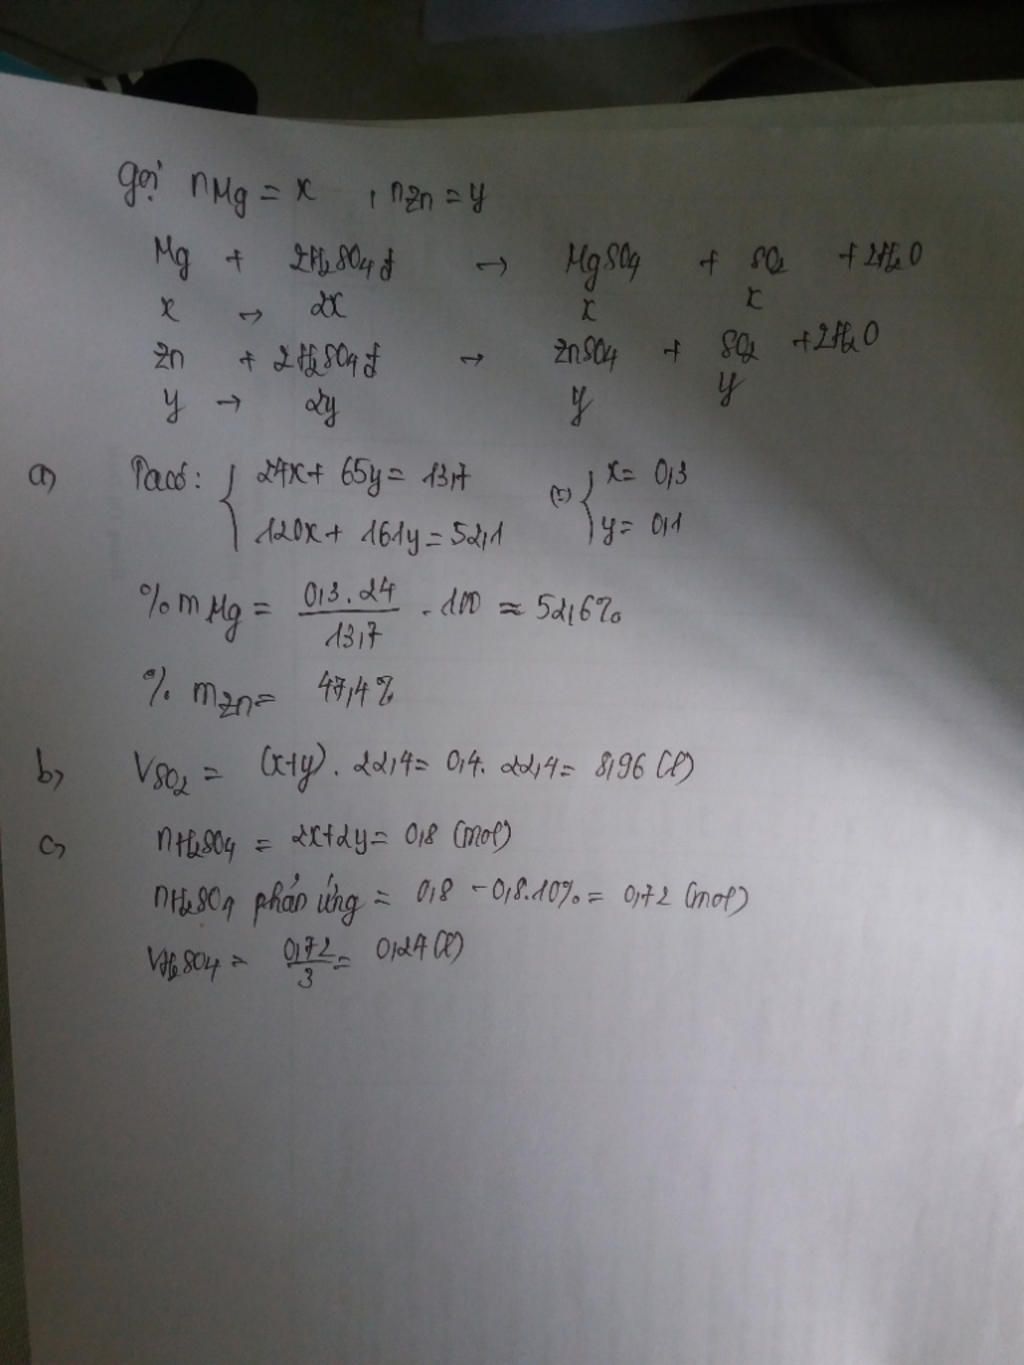 Gọi nMg = x , nZn = y
Mg + 2H2SO4đ → MgSO4 + SO2 + 2H2O
x → 2x x x
Zn + 2H2SO4đ → ZnSO4 + SO2 + 2H2O
y → 2y y y
a) Ta có: { 24x + 65y = 13,7 (=) { x = 0,3
120x + 161y = 52,1 y = 0,1
%mMg = 0,3.24 / 13,7 . 100 ≈ 52,6%
% mZn = 47,4%
b) VSO2 = (x+y). 22,4 = 0,4. 22,4 = 8,96 (l)
c) nH2SO4 = 2x+2y = 0,8 (mol)
nH2SO4 phản ứng = 0,8 - 0,8.10% = 0,72 (mol)
VH2SO4 = 0,72 / 3 = 0,24 (l)